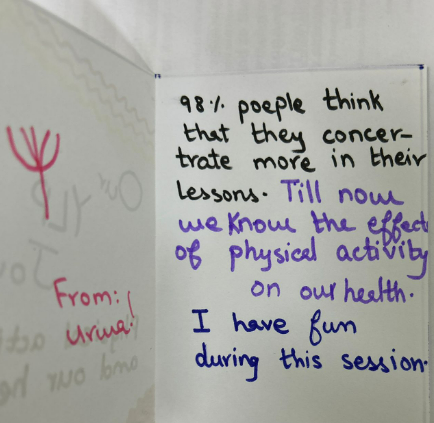 From:
98% poeple think
that they concer-
trate more in their
lessons. Till now
we know the effect
of physical activity
on our health.
I have fun
during this session.